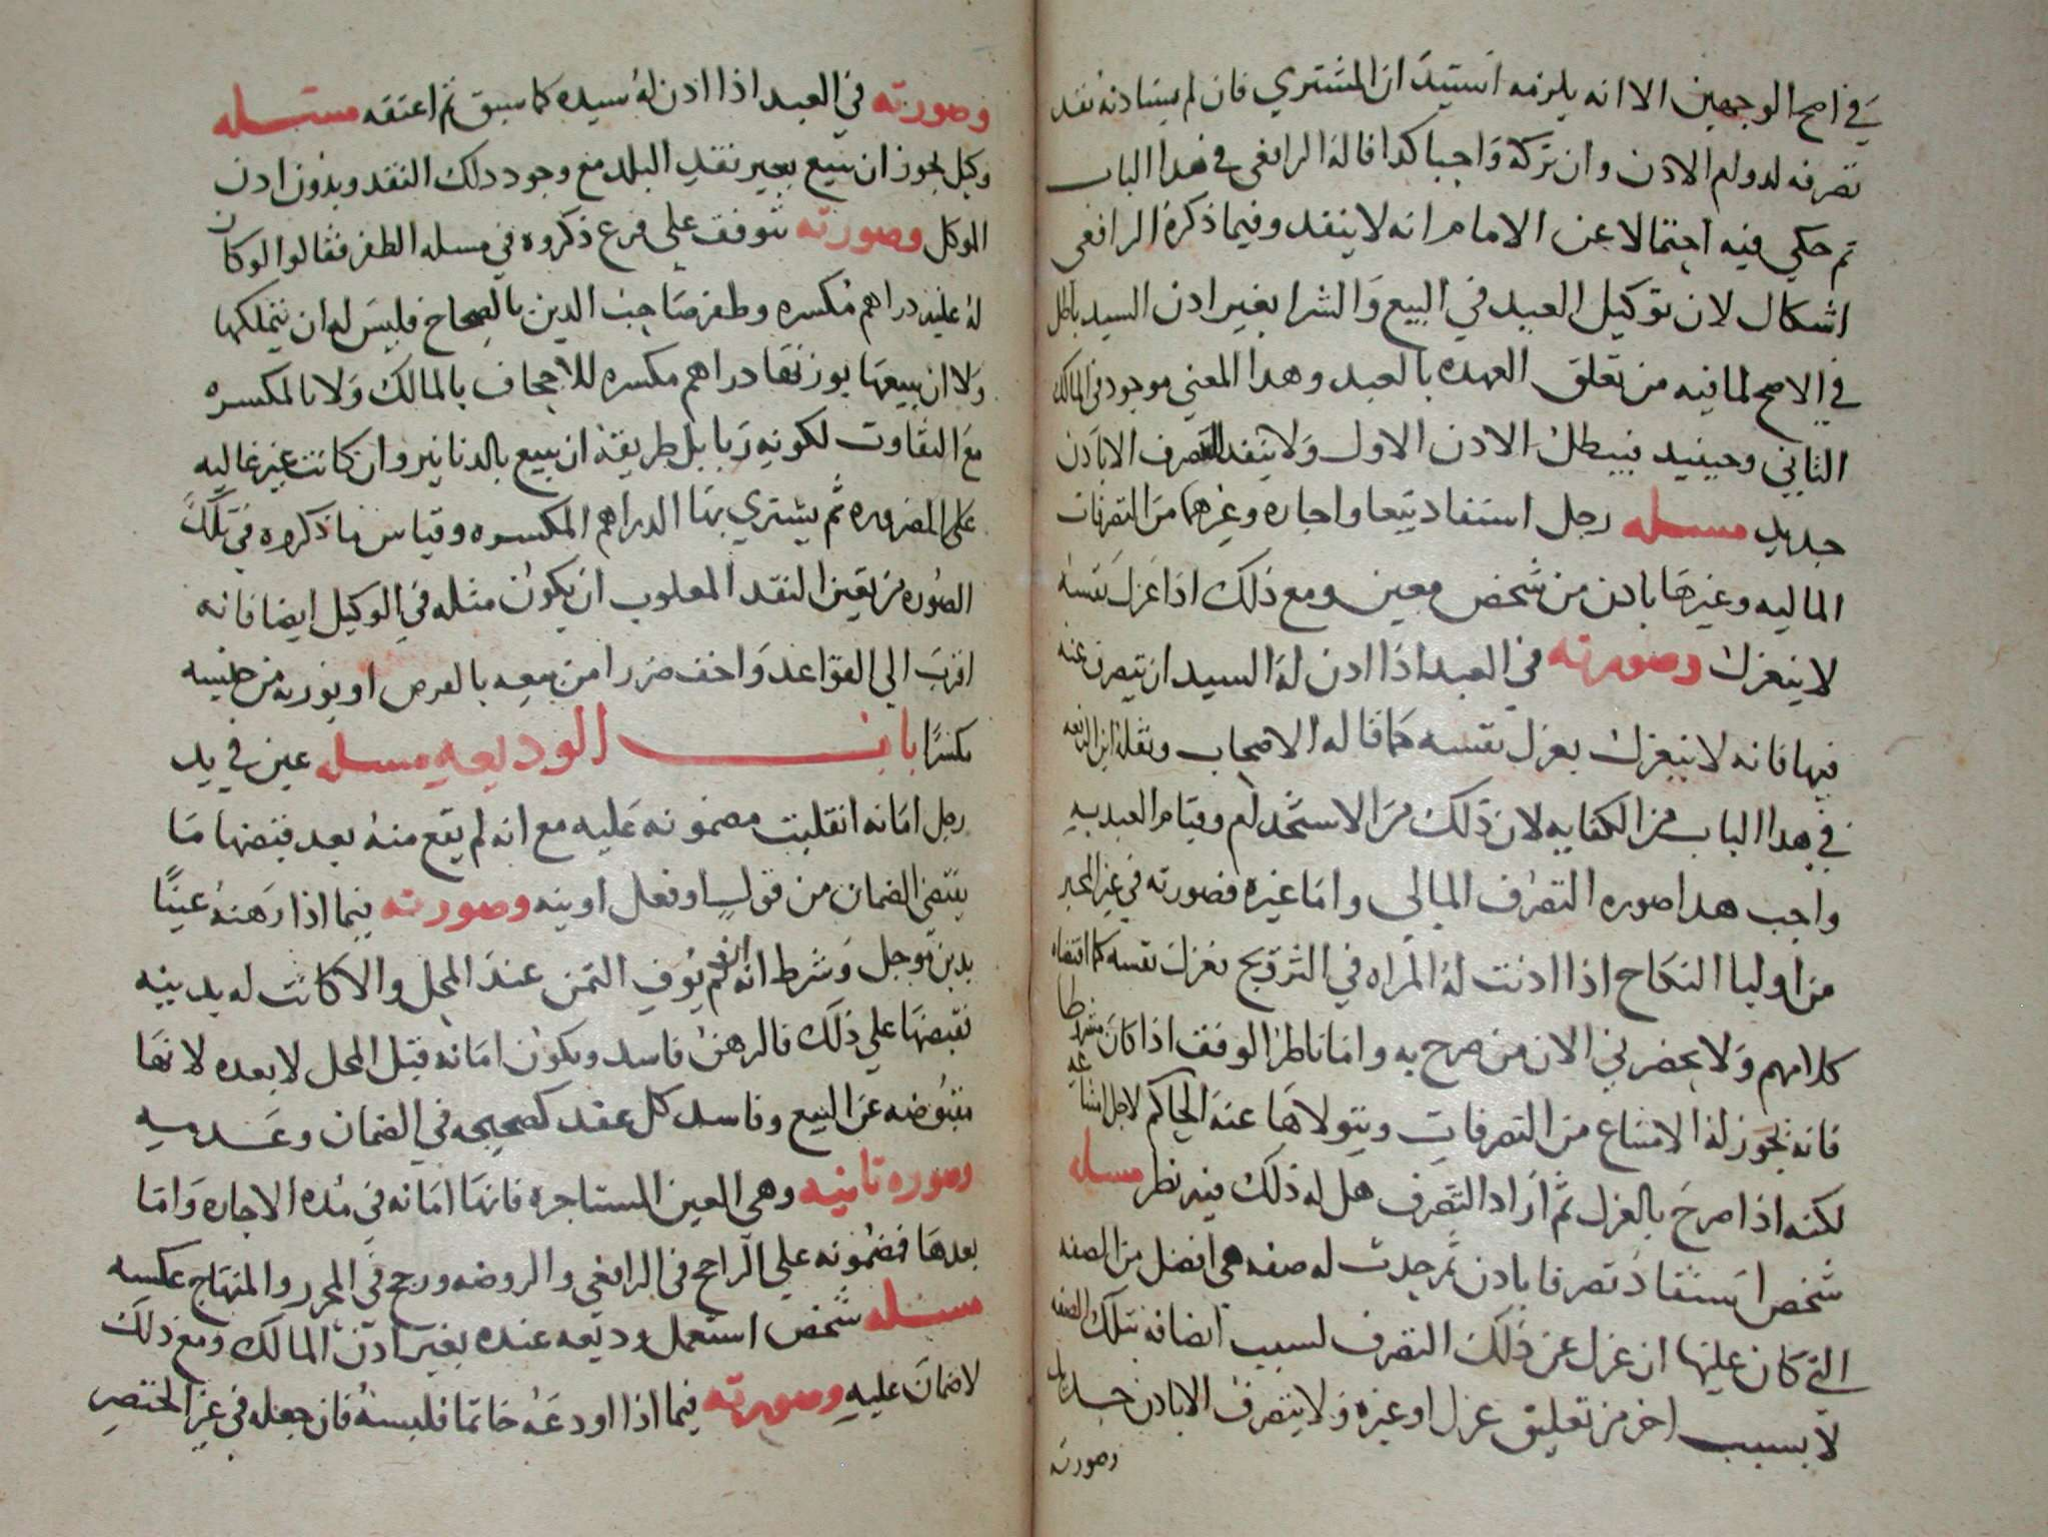 في اصح الوجهين الا انه يلزمه استيذان المشتري فان لم يستاذنه نفد
تصرفه لدوام الاذن وان تركه واجبا كذا قاله الرافعى في هدا الباب
ثم حكي فيه احتمالا عن الامام انه لا ينفد وفيما ذكره الرافعى
اشكال لان توكيل العبد في البيع والشرا بغير ادن السيد باطل
في الاصح لما فيه من تعلق العهده بالعبد وهدا المعني موجود في المالك
الثاني وحينيد فيبطل الادن الاول ولا ينفد التصرف الا باذن
جديد مسله رجل استفاد بيعا واجاره وغيرهما من التصرفات
الماليه وغيرها بادن من شخص معين ومع ذلك اذا عزل نفسه
لا ينعزل وصورته في العبد اذا ادن له السيد ان يتصرف عنه
فيها فانه لا ينعزل بعزل نفسه كما قاله الاصحاب ونقله ابن الرفعه
في هدا الباب من الكفايه لان ذلك من الاستخدام وقيام العبد به
واجب هدا صوره التصرف المالي واما غيره فصورته في غير المجبر
من اوليا النكاح اذا ادنت له المراه في التزويج فعزل نفسه كما اقتضاه
كلامهم ولا يحضرني الان من صرح به واما ناظر الوقف اذا كان مشرطا
فانه يجوز له الامتناع من التصرفات ويتولاها عنه الحاكم لاجل امتناعه
لكنه اذا صرح بالعزل ثم اراد التصرف هل له ذلك فيه نظر مسله
شخص استفاد تصرفا بادن ثم حدث له صفه هي افضل من الصفه
التي كان عليها انعزل عن ذلك التصرف لسبب اتصافه بتلك الصفه
لا بسبب اخر من تعليق عزل او غيره ولا يتصرف الا بادن جديد
وصورته
وصورته في العبد اذا ادن له سيده كما سبق ثم اعتقه مسله
وكيل يجوز ان يبيع بغير نقد البلد مع وجود دلك النقد وبدون ادن
الموكل وصورته تتوقف علي فرع ذكروه في مسله الظفر فقالوا لو كان
له عليه دراهم مكسره وظفر صاحب الدين بالصحاح فليس له ان يتملكها
ولا ان يبيعها بوزنها دراهم مكسره للاجحاف بالمالك ولا بالمكسره
مع التفاوت لكونه ربا بل طريقه ان يبيع بالدنانير وان كانت غير غاليه
على ثم يشتري بها الدراهم المكسره وقياس ما ذكروه في تلك
الصوره من تعين النقد المعلوب ان يكون مثله في الوكيل ايضا فانه
اقرب الى القواعد واخف ضررا من بيعه بالعرض او بوزنه من جنسه
مكسرا باب الوديعه مسله عين في يد
رجل امانه انقلبت مضمونه عليه مع انه لم يقع منه بعد قبضها ما
يقتضي الضمان من قول او فعل او نيه وصورته فيما اذا رهنه عينا
بدين موجل وشرط انه ان لم يوف الثمن عند المحل والا كانت له بدينه
فقبضها على ذلك فالرهن فاسد ويكون امانه قبل المحل لا بعده لانها
مقبوضه عن البيع وفاسد كل عقد كصحيحه في الضمان وعدمه
وصوره ثانيه وهى العين المستاجره فانها امانه في مده الاجاره واما
بعدها فمضمونه علي الراجح فى الرافعي والروضه ورجح في المحرر والمنهاج عكسه
مسله شخص استعمل وديعه عنده بغير ادن المالك ومع ذلك
لا ضمان عليه وصورته فيما اذا اودعه خاتما فلبسه فان جعله في غير الخنصر